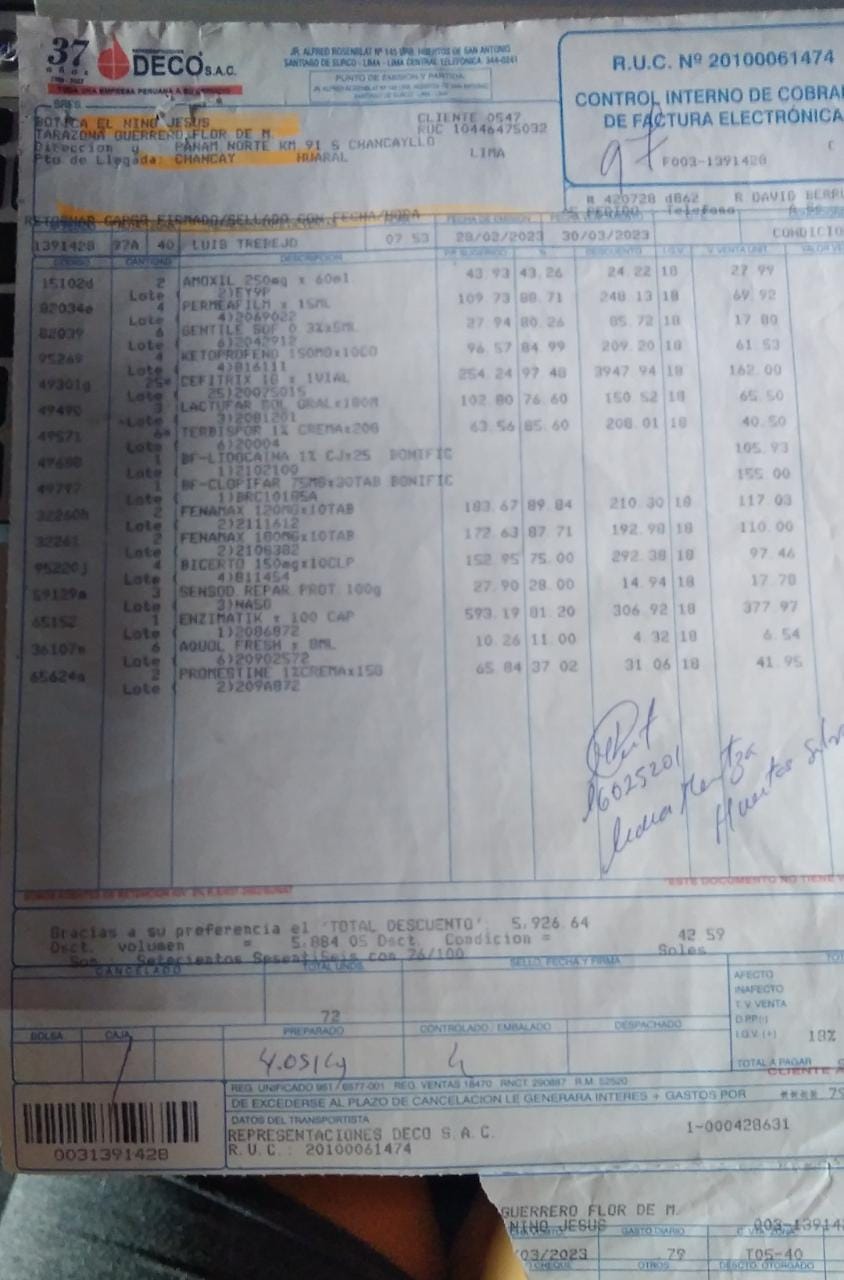 37 años
REPRESENTACIONES
DECO S.A.C.
TODA UNA EMPRESA PERUANA A SU SERVICIO
JR. ALFRED ROSENBLAT Nº 145 URB. HUERTOS DE SAN ANTONIO
SANTIAGO DE SURCO - LIMA - LIMA CENTRAL TELEFONICA: 344-0241
PUNTO DE EMISIÓN Y PARTIDA:
R.U.C. Nº 20100061474
CONTROL INTERNO DE COBRAN
DE FACTURA ELECTRÓNICA
F003-1391428
97
SRES.
BOTICA EL NINO JESUS
TARAZONA GUERRERO FLOR DE M.
CLIENTE 0547
RUC 10446475032
Direccion y PANAM NORTE KM 91 5 CHANCAYLLO
Pto de Llegada: CHANCAY HUARAL LIMA
R 420728 d862 R DAVID BERRU
RETORNAR CARGO FIRMADO/SELLADO CON FECHA/HORA
PEDIDO Telefono
FECHA DE EMISIÓN
1391428 97A 40 LUIS TREBEJO 07 53 28/02/2023 30/03/2023 CONDICIO
CODIGO CANTIDAD DESCRIPCION P.P. SUGERIDO % DESCUENTO I.G.V. V. VENTA UNIT. VALOR VE
15102d 2 AMOXIL 250mg x 60ml 43.93 43.26 24.22 18 27.99
Lote ( 2)EY9P
82034e 4 PERMEAFILM x 15ML 109.73 88.71 248.13 18 69.92
Lote ( 4)2069022
82039 6 GENTILE SOF 0.3%x5ML 27.94 80.26 85.72 18 17.80
Lote ( 6)2042912
95269 4 KETOPROFENO 150MGx10CO 96.57 84.99 209.20 18 61.53
Lote ( 4)816111
49301g 25* CEFITRIX 1G x 1VIAL 254.24 97.48 3947.94 18 162.00
Lote ( 25)20075015
49490 3 LACTUFAR SOL ORAL x180M 102.80 76.60 150.52 18 65.50
Lote ( 3)2081201
49571 6* TERBISFOR 1% CREMAx20G 63.56 85.60 208.01 18 40.50
Lote ( 6)20004
49688 1 BF-LIDOCAINA 1% CJx25 BONIFIC 105.93
Lote ( 1)2102100
49797 1 BF-CLOPIFAR 75MGx30TAB BONIFIC 155.00
Lote ( 1)BRC10185A
32260h 2 FENAMAX 120MGx10TAB 183.67 89.84 210.30 18 117.03
Lote ( 2)2111612
32261 2 FENAMAX 180MGx10TAB 172.63 87.71 192.98 18 110.00
Lote ( 2)2106382
95220j 4 BICERTO 150mgx10CLP 152.95 75.00 292.38 18 97.46
Lote ( 4)811454
59129m 3 SENSOD REPAR PROT. 100g 27.90 28.00 14.94 18 17.78
Lote ( 3)NA5G
65152 1 ENZIMATIK x 100 CAP 593.19 81.20 306.92 18 377.97
Lote ( 1)2086872
36107m 6 AQUOL FRESH x 8ML 10.26 11.00 4.32 18 6.54
Lote ( 6)20902572
65624a 2 PROMESTINE 1%CREMAx15G 65.84 37.02 31.06 18 41.95
Lote ( 2)209A872
16025201
Huertas
*ESTE DOCUMENTO NO TIENE V
Gracias a su preferencia el 'TOTAL DESCUENTO': 5,926.64
Dsct. volumen = 5,884.05 Dsct. Condicion = 42.59
Son : Setecientos SesentiSeis con 76/100 Soles
CANCELADO TOTAL UNDS. SELLO, FECHA Y FIRMA TOT
72
AFECTO
INAFECTO
T. V VENTA
D.P.P.(-)
I.G.V. (+) 18%
TOTAL A PAGAR
BOLSA CAJA PREPARADO CONTROLADO / EMBALADO DESPACHADO
1
CLIENTE A
REG. UNIFICADO 951 / 6577-001 REG. VENTAS 18470 RNCT. 290887 R.M. 52520
DE EXCEDERSE AL PLAZO DE CANCELACION LE GENERARA INTERES + GASTOS POR **** .79
DATOS DEL TRANSPORTISTA
REPRESENTACIONES DECO S.A.C. 1-000428631
R.U.C.: 20100061474
0031391428
GUERRERO FLOR DE M.
NINO JESUS 003-13914
GASTO DIARIO
/03/2023 .79 T05-40
CHEQUE OTROS DESCTO. OTORGADO